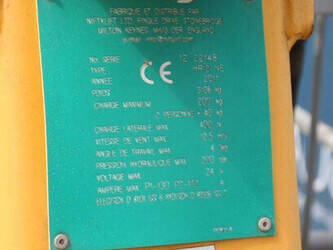 FABRIQUE ET DISTRIBUE PAR
NIFTYLIFT LTD. FINGLE DRIVE STONEBRIDGE
MILTON KEYNES MK13 0ER ENGLAND
e-mail: info@niftylift.com
No. SERIE 12 22148
TYPE HR12 NE
ANNEE 2011
POIDS kg
CHARGE MAXIMUM 200 kg
2 PERSONNES + 40 kg
CHARGE LATERALE MAX. 400 N
VITESSE DE VENT MAX. 12.5 m/s
ANGLE DE TRAVAIL MAX.
PRESSION HYDRAULIQUE MAX. 200 bar
VOLTAGE MAX. 24 V
AMPERE MAX.
CE